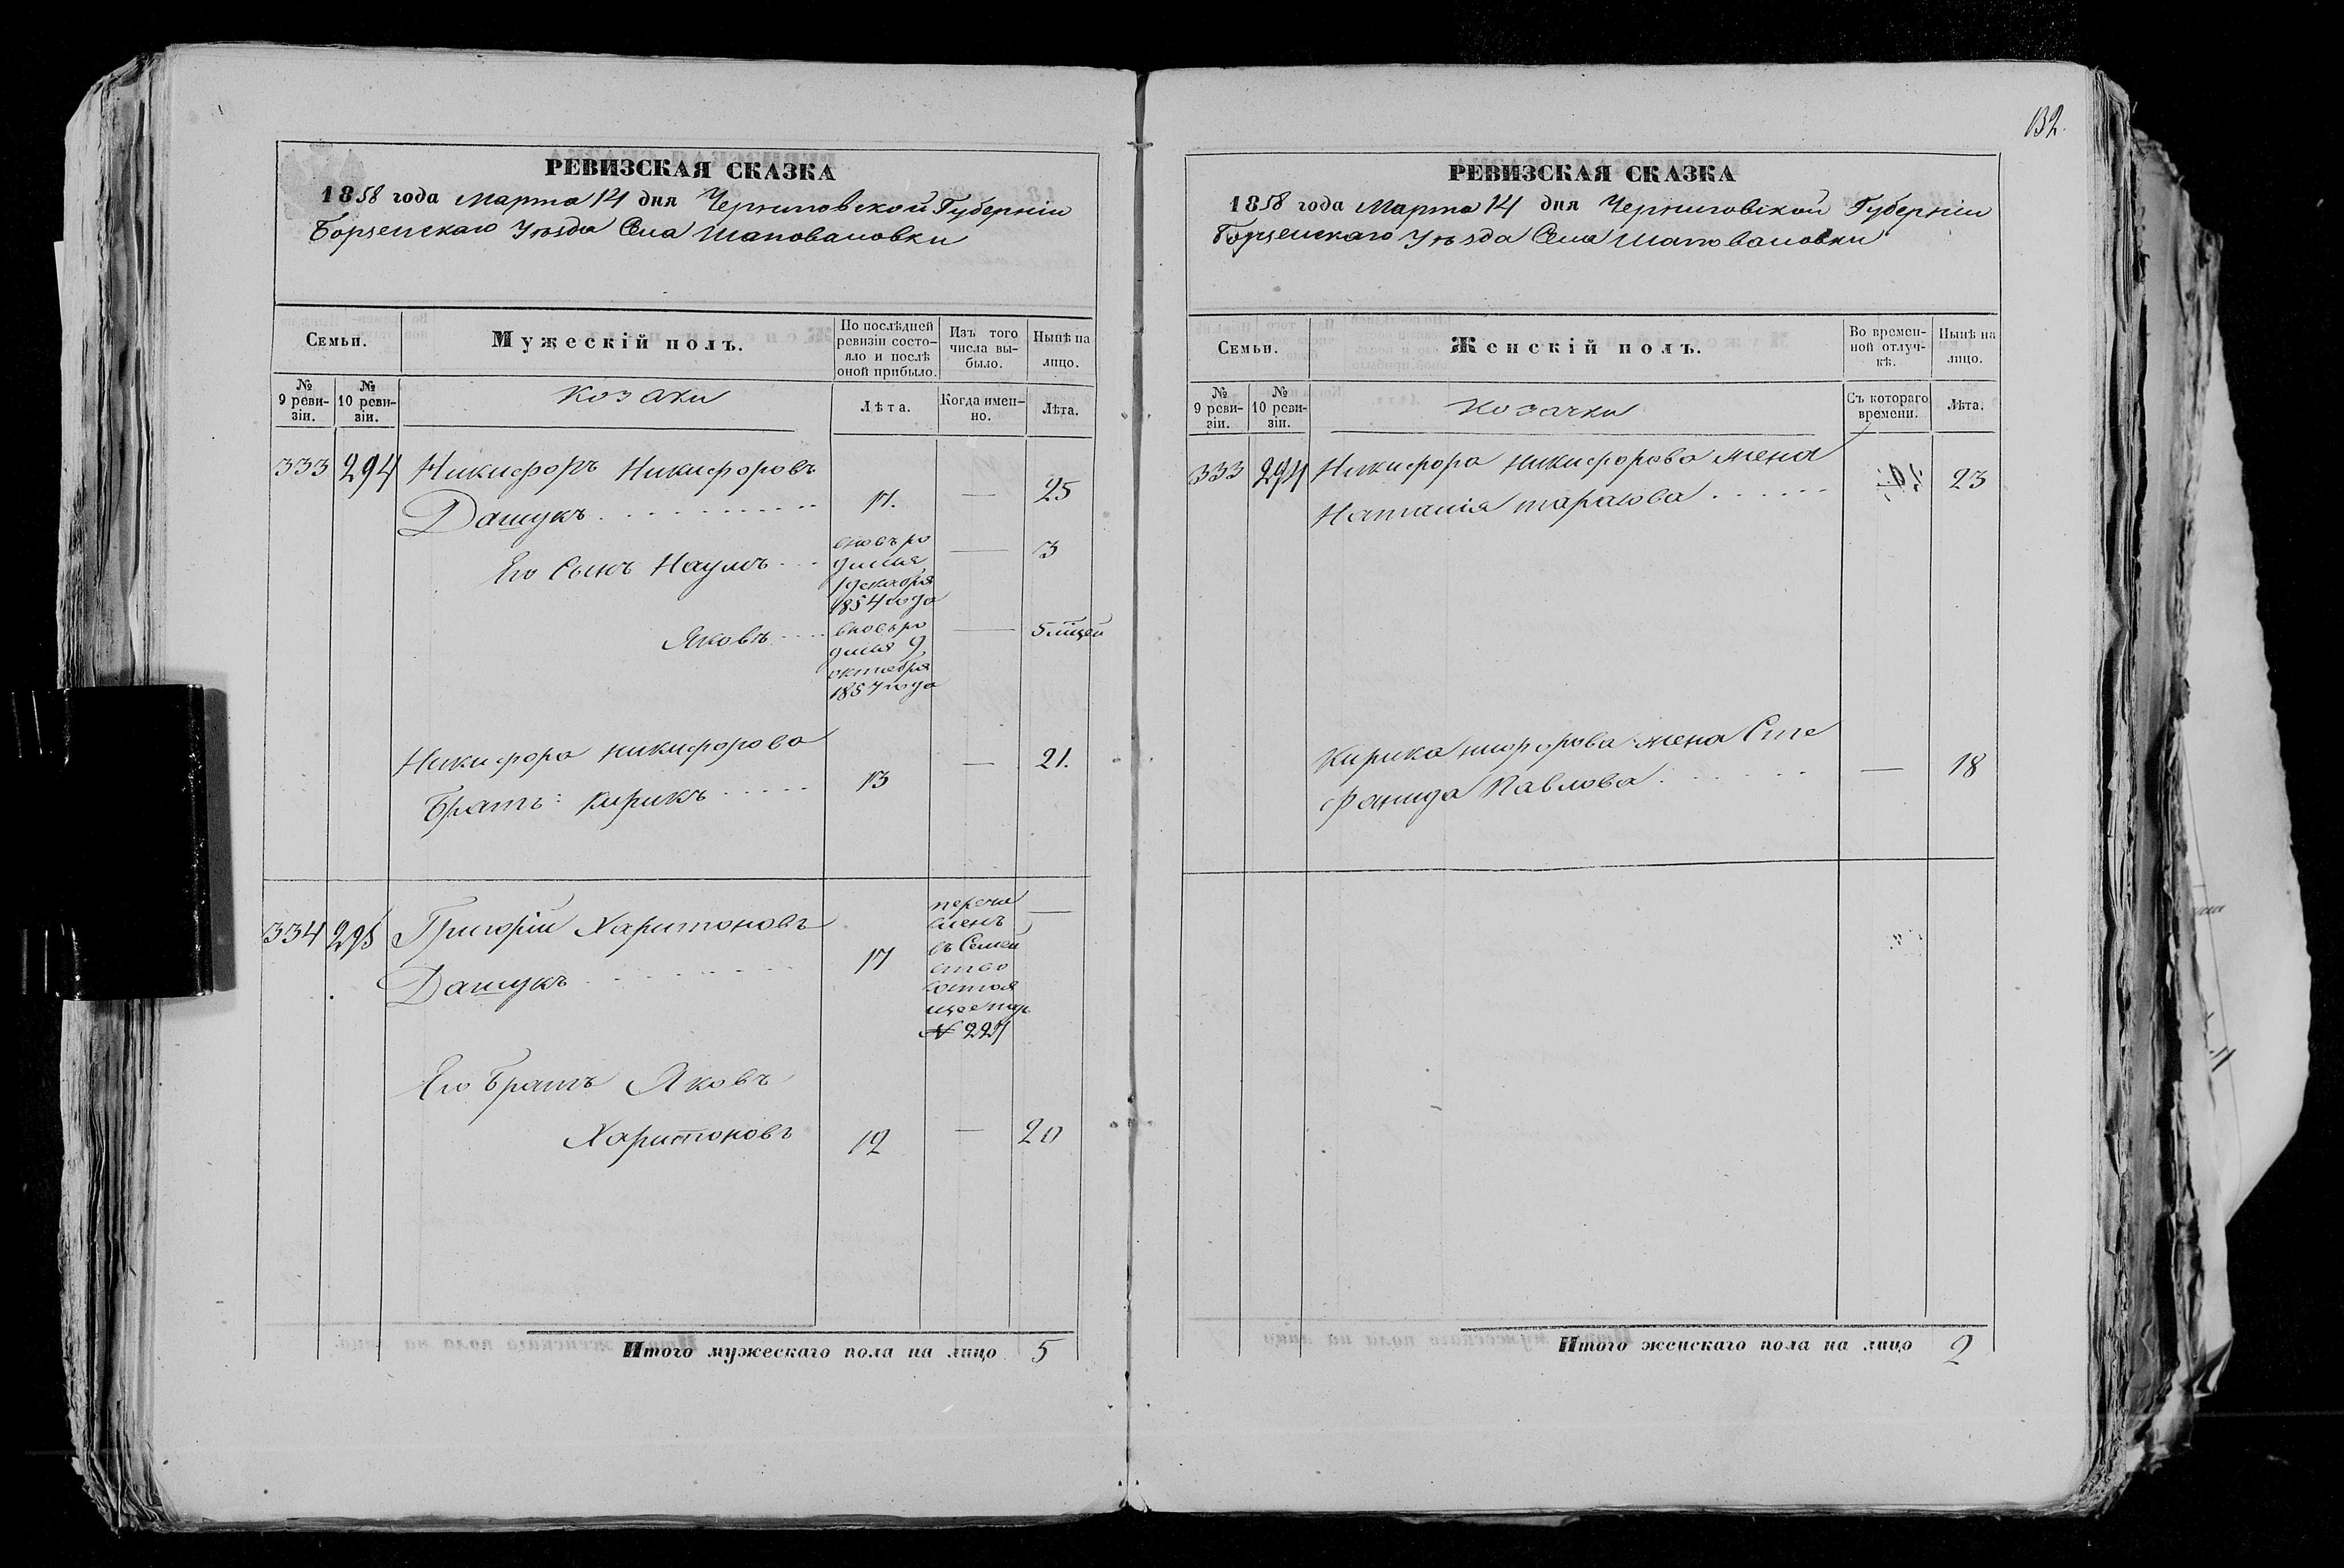 132.
РЕВИЗСКАЯ СКАЗКА
1858 года Марта 14 дня Черниговской Губерніи
Борзенскаго Уѣзда Села Шаповаловки
Семьи.
Мужескій полъ.
По послѣдней ревизіи состояло и послѣ оной прибыло.
Изъ того числа выбыло.
Нынѣ на лицо.
№ 9 ревизіи.
№ 10 ревизіи.
козаки
Лѣта.
Когда именно.
Лѣта.
333 294 Никифоръ Никифоровъ
Дашукъ 17. — 25
Его Сынъ Наумъ вновь ро — 3
дился
1 декабря
1854 года
Яковъ вновь ро — 5 мцей
дился 9
октября
1857 года
Никифора никифорова
Братъ: Кирикъ 13 — 21.
334 295 Григорій Харитоновъ
Дашукъ 17
перечи —
сленъ
въ Семей
ство
состоя
щее подъ
№ 227
Его Братъ Яковъ
Харитоновъ 12 — 20
Итого мужескаго пола на лицо 5
РЕВИЗСКАЯ СКАЗКА
1858 года Марта 14 дня Черниговской Губерніи
Борзенскаго Уѣзда Села Шаповаловки
Семьи.
Женскій полъ.
Во временной отлучкѣ.
Нынѣ на лицо.
№ 9 ревизіи.
№ 10 ревизіи.
козачки
Съ котораго времени.
Лѣта.
333 294 Никифора никифорова жена
Наталія тарасова 23
Кирика никифорова жена Сте
фанида Павлова — 18
Итого женскаго пола на лицо 2